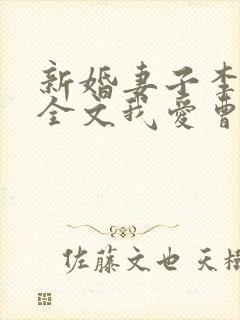 新婚妻子李
全文我爱曹
佐藤文也 天樹